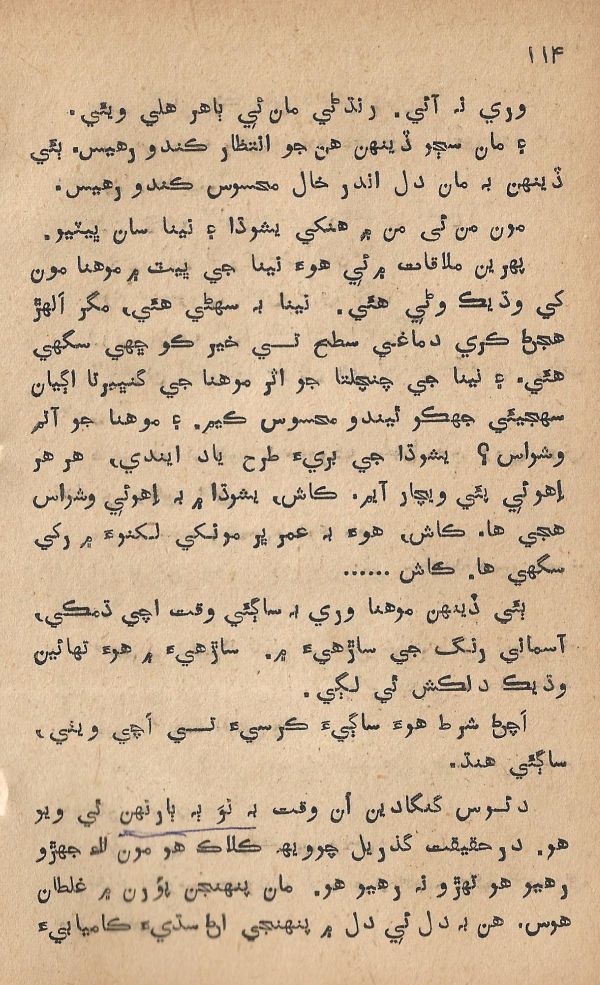 ۱۱۴
وري نہ آئي. رنڌڻي مان ئي ٻاهر هلي ويئي.
۽ مان سڄو ڏينهن هن جو انتظار ڪندو رهيس. ٻئي
ڏينهن بہ مان دل اندر خال محسوس ڪندو رهيس.
مون من ئي من ۾ هنکي يشوڌا ۽ نينا سان ڀيٽيو.
پهرين ملاقات ۾ ئي هوءَ نينا جي ڀيٽ ۾ موهنا مون
کي وڌيڪ وڻي هئي. نينا بہ سهڻي هئي، مگر اَلهڙ
هجڻ ڪري دماغي سطح تي خير ڪو ڇهي سگهي
هئي. ۽ نينا جي چنچلتا جو اثر موهنا جي گنڀيرتا اڳيان
سهجيئي جهڪو ٿيندو محسوس ڪيم. ۽ موهنا جو آتم
وشواس؟ يشوڌا جي بريءَ طرح ياد ايندي، هر هر
اِهوئي پئي ويچار آيم. ڪاش، يشوڌا ۾ بہ اِهوئي وشواس
هجي ها. ڪاش، هوءَ بہ عمر ڀر مونکي لکنوءَ ۾ رکي
سگهي ها. ڪاش ......
ٻئي ڏينهن موهنا وري بہ ساڳئي وقت اچي ڌمڪي،
آسماني رنگ جي ساڙهيءَ ۾. ساڙهيءَ ۾ هوءَ تهائين
وڌيڪ دلڪش ٿي لڳي.
اَچڻ شرط هوءَ ساڳيءَ ڪرسيءَ تي اَچي ويٺي،
ساڳئي هنڌ.
دئوس گنگادين اُن وقت بہ نَوَ بہ ٻارنهن ٿي ويو
هو. درحقيقت گذريل چوويهہ ڪلاڪ هو مون لاءِ جهڙو
رهيو هو تهڙو نہ رهيو هو. مان پنهنجن پوُرن ۾ غلطان
هوس. هن بہ دل ئي دل ۾ پنهنجي اڻ سڌيءَ ڪاميابيءَ